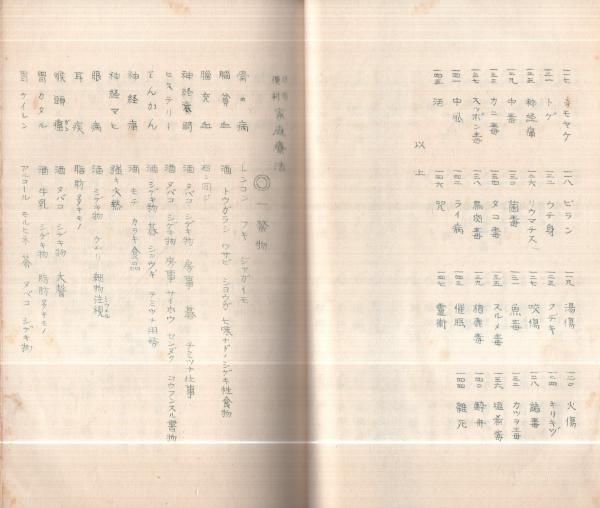 一一七 シモヤケ 一一八 ビラン 一一九 湯傷 一二〇 火傷
一二一 トゲ 一二二 ウチ身 一二三 クヂキ 一二四 キリキヅ
一二五 神経痛 一二六 リウマチス 一二七 咬傷 一二八 諸毒
一二九 中毒 一三〇 菌毒 一三一 魚毒 一三二 カツヲ毒
一三三 カニ毒 一三四 タコ毒 一三五 スルメ毒 一三六
一三七 スッポン毒 一三八 鳥肉毒 一三九 一四〇 酔舟
一四一 中風 一四二 ライ病 一四三 催眠 一四四 雑死
一四五 活 一四六 咒 一四七 霊術
以上
家庭療法
◎ 一 禁物
骨の病 レンコン フキ ジャガイモ
脳貧血 酒 トウガラシ ワサビ ショウガ 七味ナドノシゲキ性食物
脳充血 右ニ同ジ
神経衰弱 酒 タバコ シゲキ物 房事 碁 テミツナ仕事
ヒステリー 酒 タバコ シゲキ物 房事 サイホウ センダク コウフンスル書物
てんかん 酒 シゲキ物 碁 ショウギ テミツナ用務
神経痛 酒 モチ カタキ食品
神経マヒ 強キ火熱
眼病 酒 シゲキ物 ケムリ 細物注視
耳疾 脂肪多キモノ
喉頭 酒 タバコ シゲキ物 大聲
胃カタル 酒 牛乳 シゲキ物 脂肪多キモノ
胃ケイレン アルコール モルヒネ 茶 タバコ シゲキ物